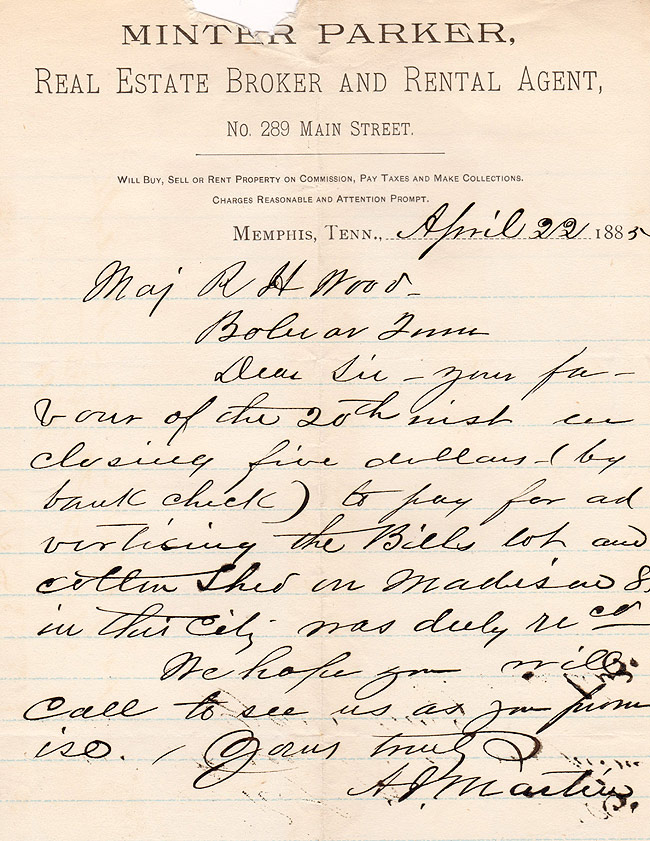 MINTER PARKER,
REAL ESTATE BROKER AND RENTAL AGENT,
No. 289 MAIN STREET.
WILL BUY, SELL OR RENT PROPERTY ON COMMISSION, PAY TAXES AND MAKE COLLECTIONS.
CHARGES REASONABLE AND ATTENTION PROMPT.
MEMPHIS, TENN., April 22 1885
Maj R H Wood
Bolivar Tenn
Dear Sir - your fa-
vour of the 20th inst en
closing five dollars (by
bank check) to pay for ad
vertising the Bills lot and
cotton Shed on Madison St
in this City was duly recd
We hope you will
call to see us as you prom
ise. Yours truly
A J Martin